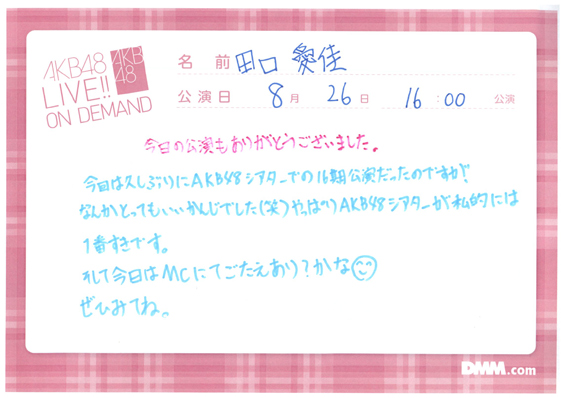 AKB48
LIVE!!
ON DEMAND
AKB
48
名 前 田口 愛佳
公演日 8月 26日 16:00 公演
今日の公演もありがとうございました。
今日は久しぶりにAKB48シアターでの16期公演だったのですが!
なんかとってもいいかんじでした(笑)やっぱりAKB48シアターが私的には
1番すきです。
そして今日はMCにてごたえあり?かな
ぜひみてね。
DMM.com